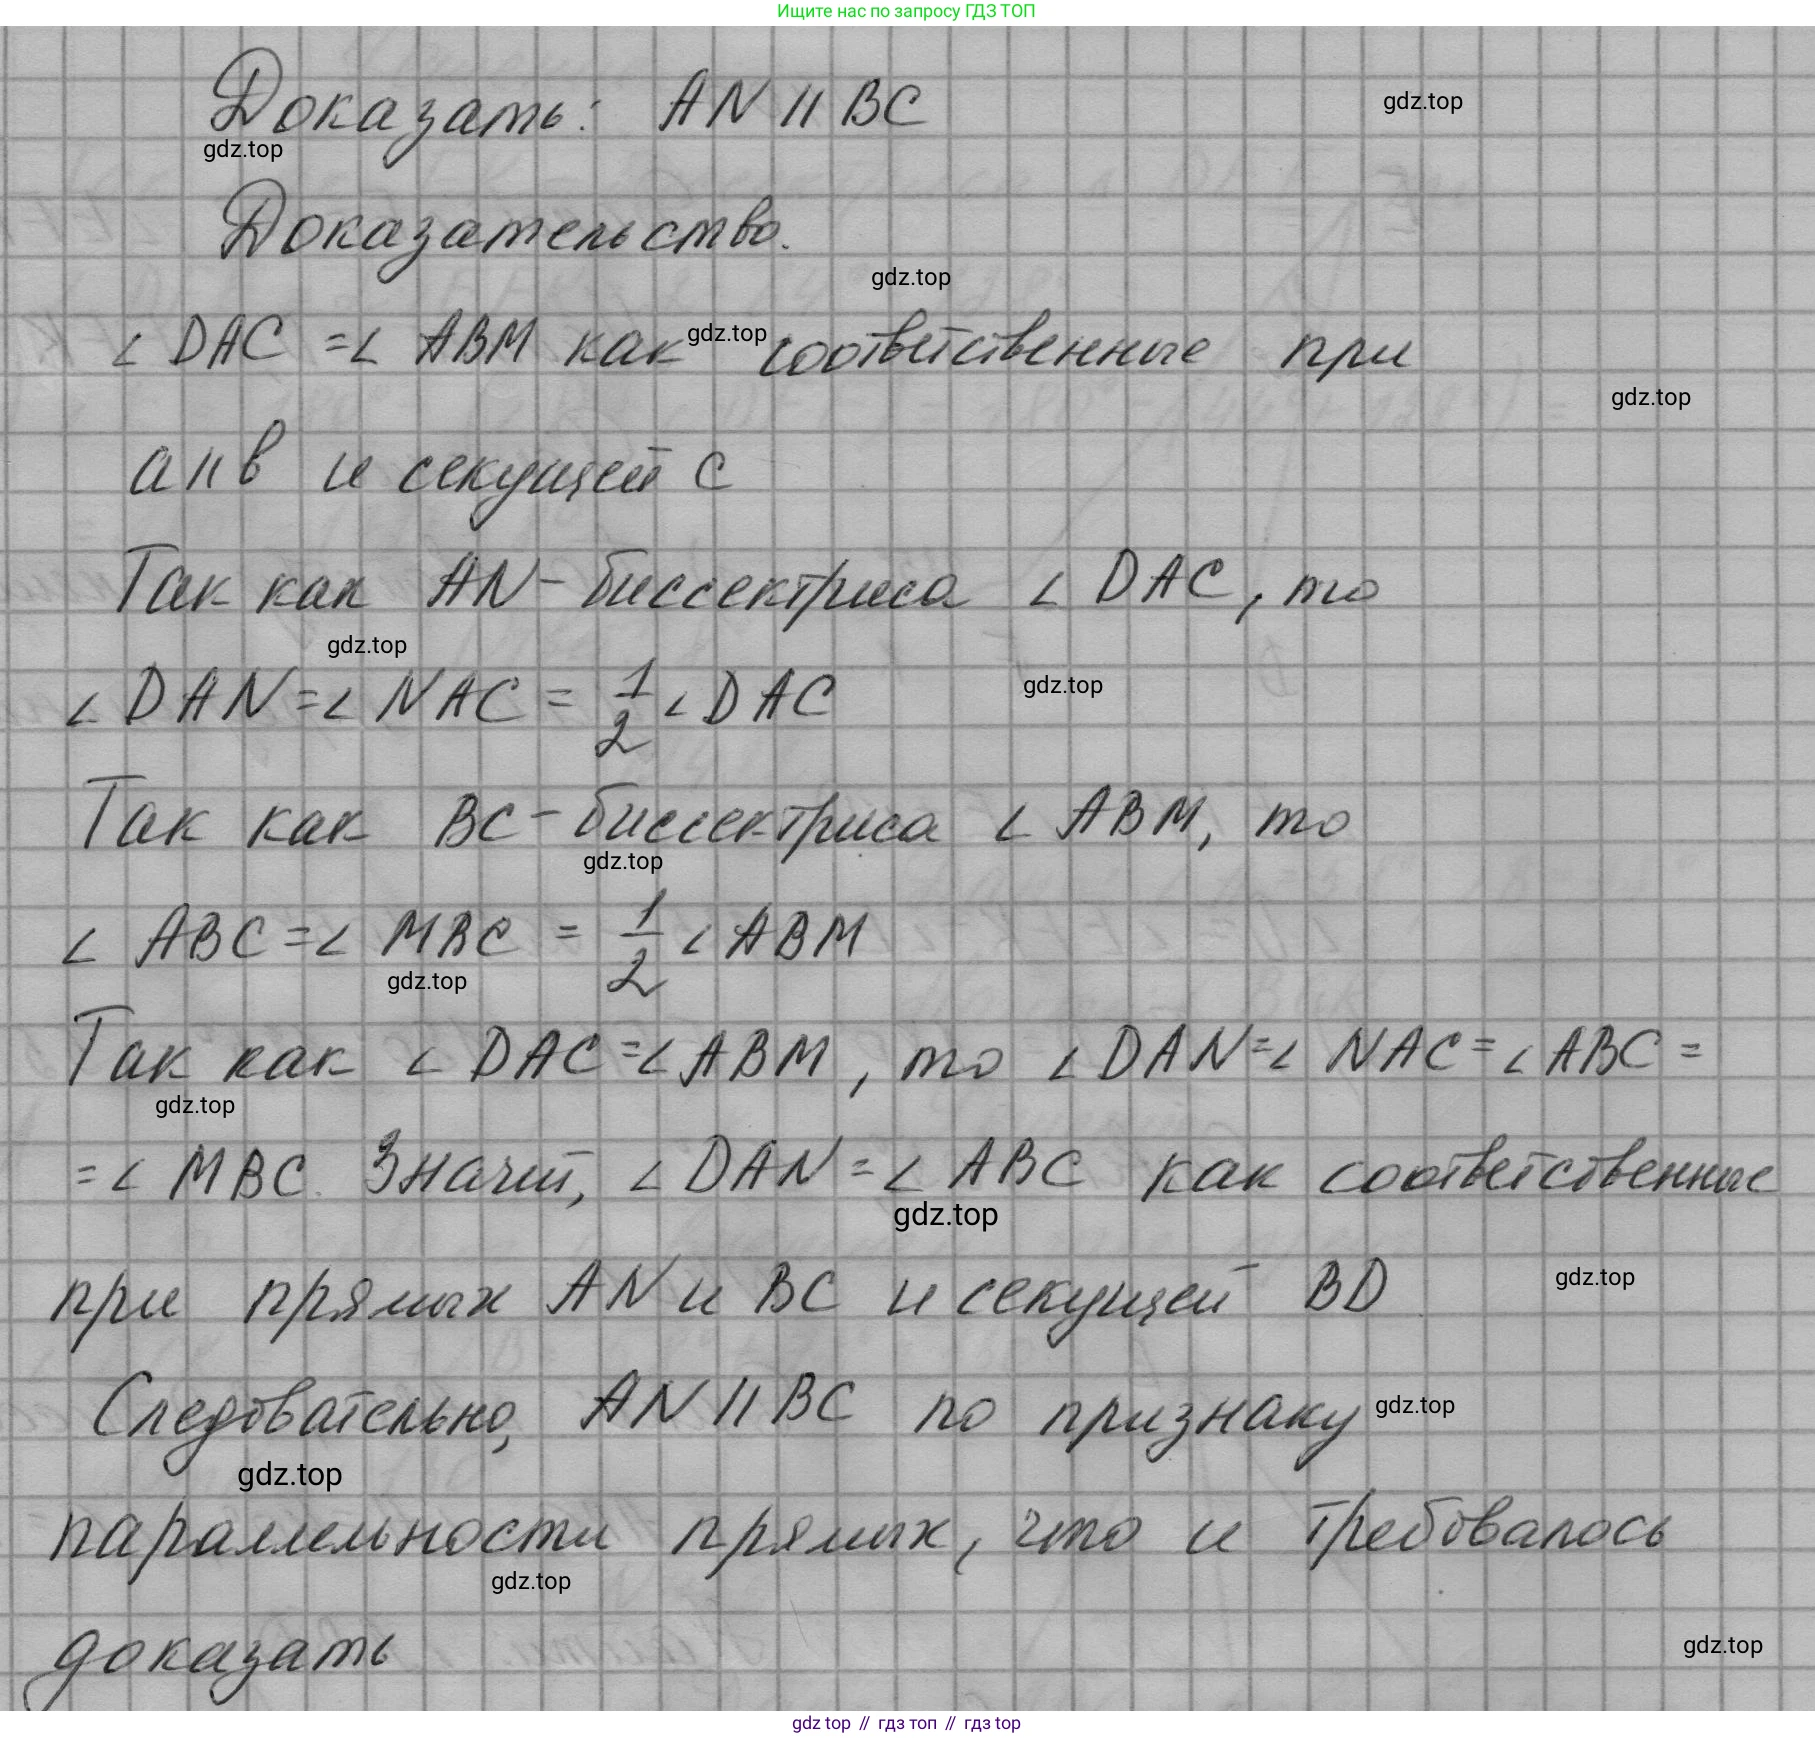 Ищите нас по запросу ГДЗ ТОП
Доказать: AN || BC
gdz.top
gdz.top
Доказательство.
gdz.top
∠ DAC = ∠ ABM как соответственные при
gdz.top
gdz.top
a || в и секущей с
Так как AN - биссектриса ∠ DAC, то
gdz.top
gdz.top
∠ DAN = ∠ NAC = 1/2 ∠ DAC
Так как BC - биссектриса ∠ ABM, то
gdz.top
∠ ABC = ∠ MBC = 1/2 ∠ ABM
gdz.top
Так как ∠ DAC = ∠ ABM, то ∠ DAN = ∠ NAC = ∠ ABC =
gdz.top
= ∠ MBC. Значит, ∠ DAN = ∠ ABC как соответственные
gdz.top
при прямых AN и BC и секущей BD
gdz.top
Следовательно, AN || BC по признаку
gdz.top
gdz.top
параллельности прямых, что и требовалось
gdz.top
доказать
gdz.top
gdz top // гдз топ // гдз top